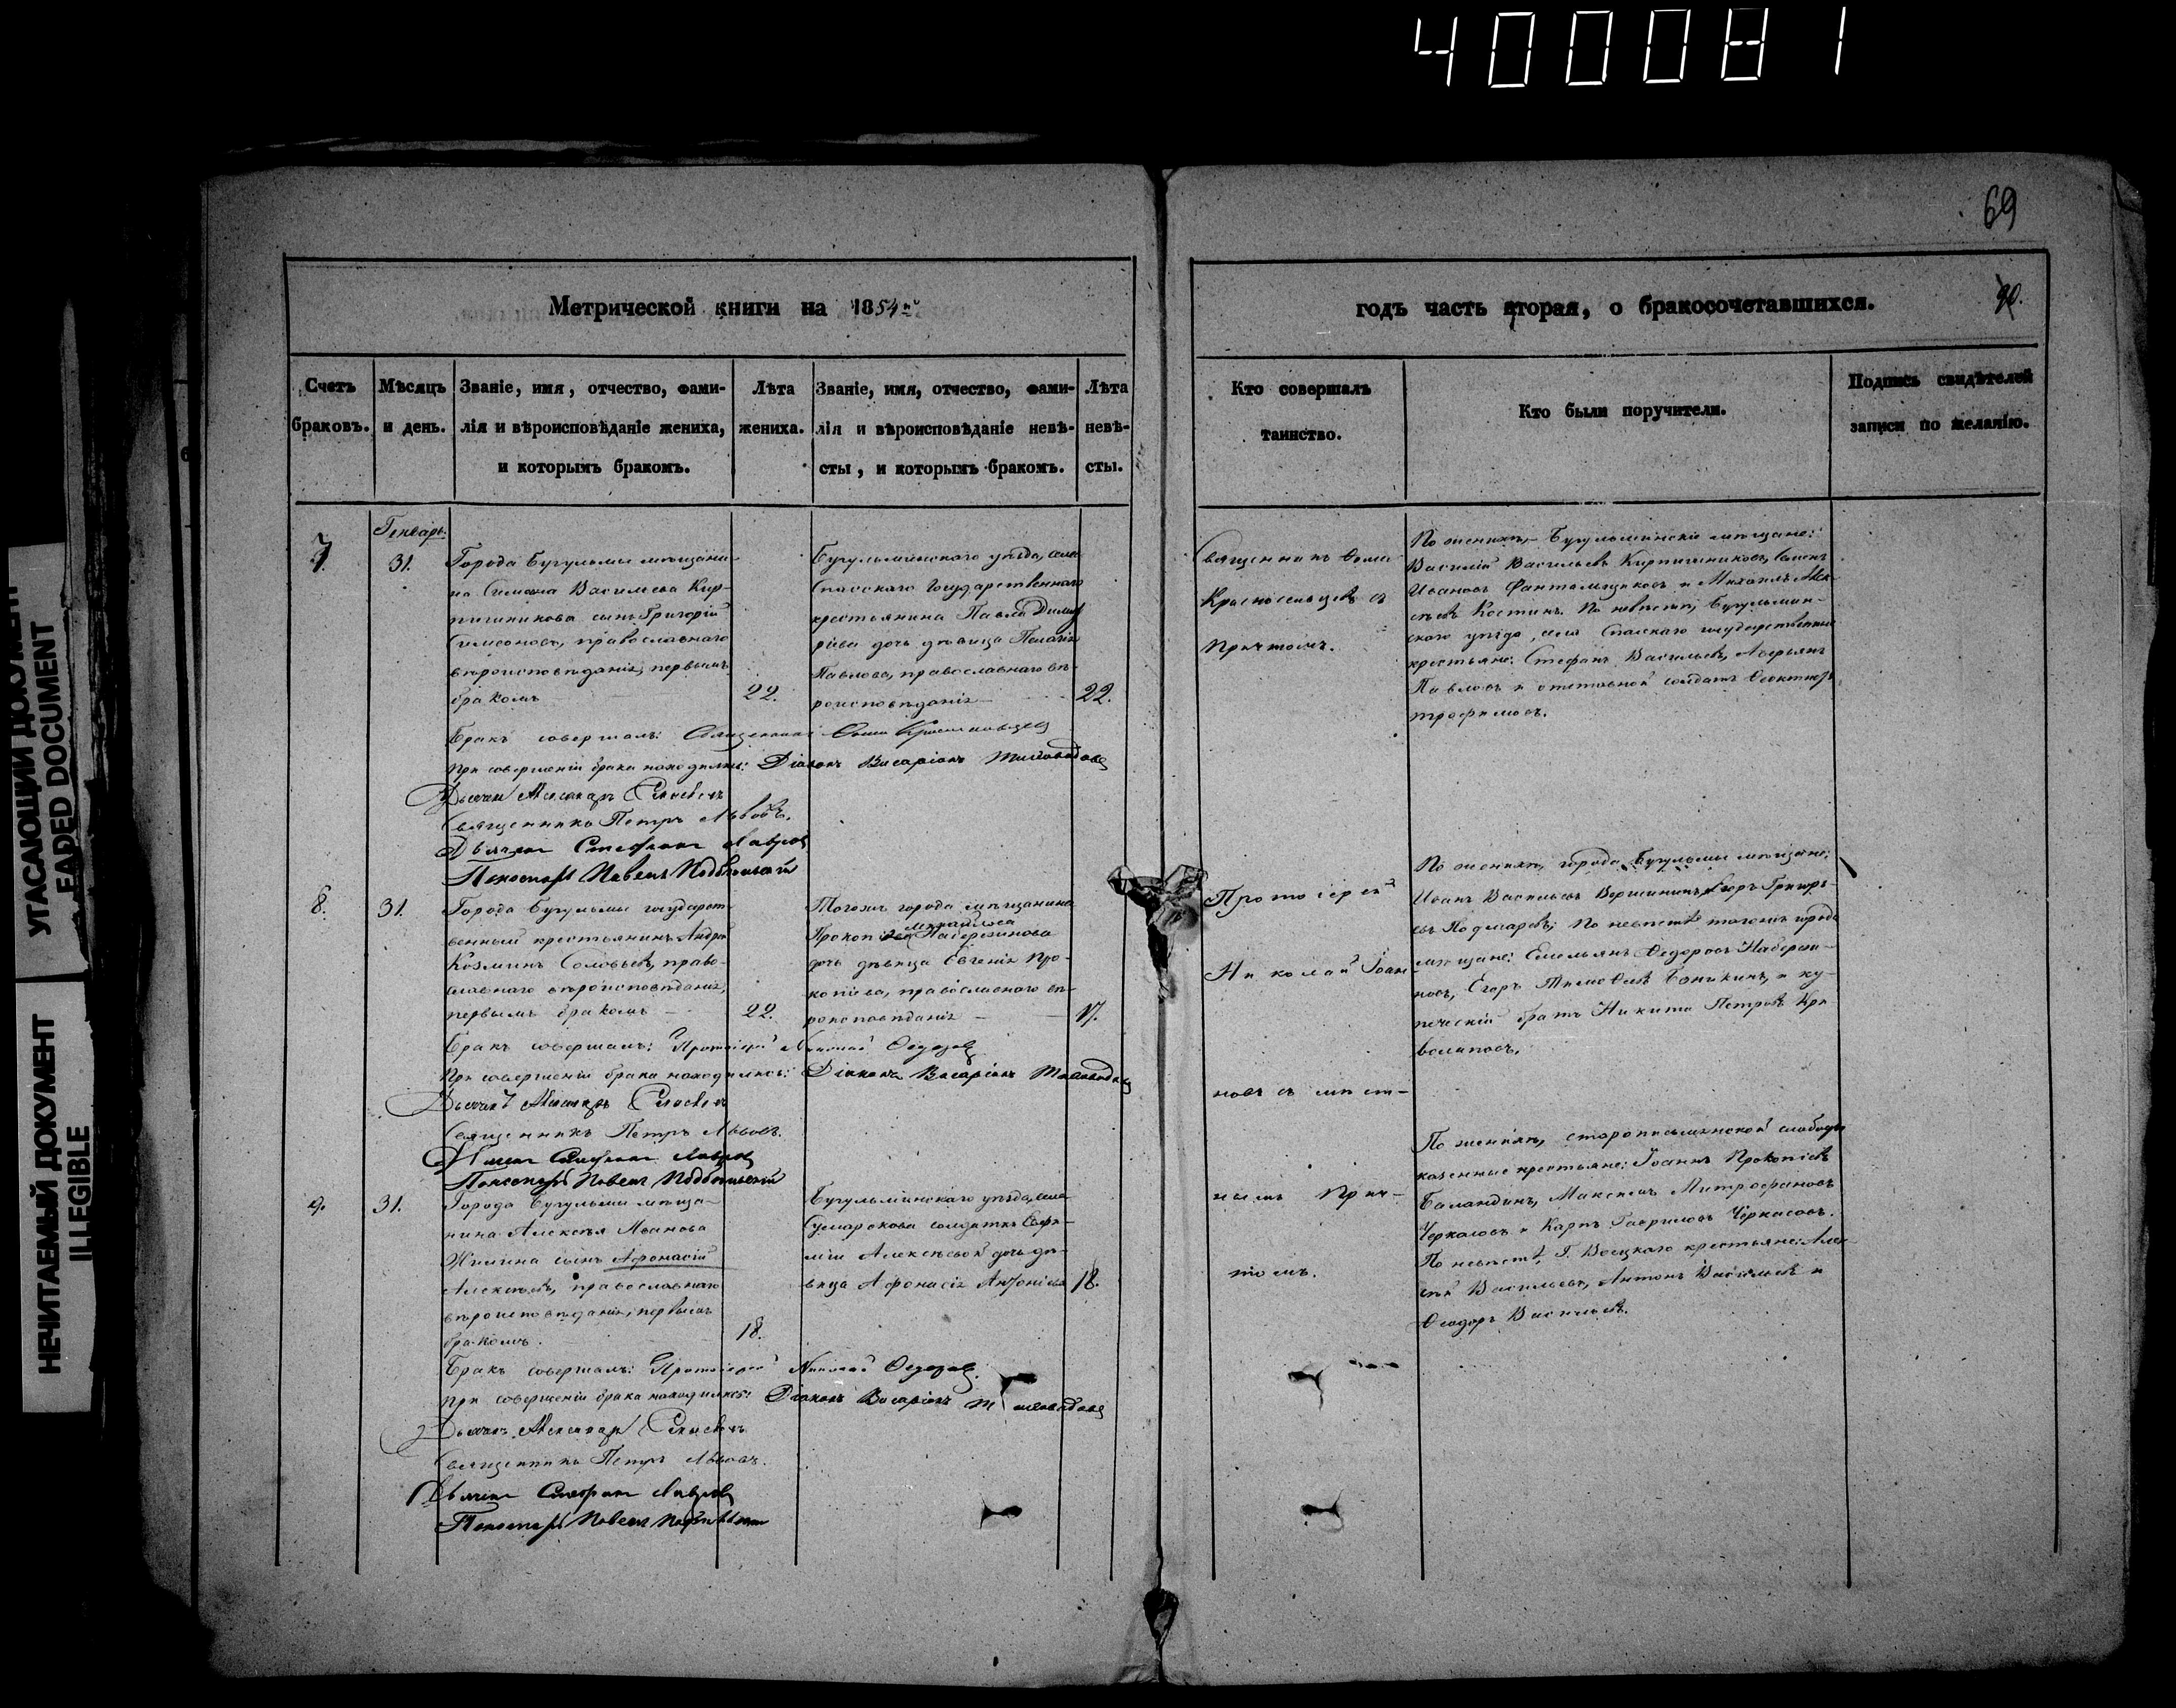 400081
69
Метрической книги на 1854 г
годъ часть вторая, о бракосочетавшихся.
Счетъ
браковъ.
Мѣсяцъ
и день.
Званіе, имя, отчество, фами-
лія и вѣроисповѣданіе жениха,
и которымъ бракомъ.
Лѣта
жениха.
Званіе, имя, отчество, фами-
лія и вѣроисповѣданіе невѣ-
сты, и которымъ бракомъ.
Лѣта
невѣ-
сты.
Кто совершалъ
таинство.
Кто были поручители.
Подпись свидѣтелей
записи по желанію.
7.
Генварь.
31.
Города Бугульмы мѣщани-
на Симеона Васильева Кир-
пишникова сынъ Григорій
Симеоновъ, православнаго
вѣроисповѣданія, первымъ
бракомъ
22.
Бугульминскаго уѣзда, села
Спасскаго Государственнаго
крестьянина Павла Димит
ріева дочь дѣвица Пелагія
Павлова, православнаго вѣ-
роисповѣданія
22.
Священникъ Ѳома
Красносельцевъ съ
Причтомъ.
По женихѣ, Бугульминскіе мѣщане:
Василій Васильевъ Кирпишниковъ,
Ивановъ и Михаилъ Алек-
сѣевъ Костинъ. По невѣстѣ; Бугульмин-
скаго уѣзда, села Спаскаго государственные
крестьяне: Стефанъ Васильевъ, Аверьянъ
Павловъ и отставной солдатъ
трофимовъ.
Бракъ совершалъ: Священникъ Ѳома Красносельцевъ
При совершеніи брака находились: Діаконъ Висаріонъ
Дьячекъ Александръ
Священникъ Петръ Львовъ.
Дьячекъ Стефанъ Лавровъ
Пономарь Павелъ Подбѣльскій
8.
31.
Города Бугульмы государст-
венный крестьянинъ Андрей
Козминъ Соловьевъ, право-
славнаго вѣроисповѣданія,
первымъ бракомъ
22.
Тогожъ города мѣщанина
Прокопія Михайлова Наберезнова
дочь дѣвица Евгенія Про-
копіева, православнаго вѣ-
роисповѣданія
17.
Протоіерей
Николай Іоан-
новъ съ мѣст-
нымъ Прич-
томъ.
По женихѣ, города Бугульмы мѣщане:
Иванъ Васильевъ Вершининъ, Егоръ Григорь-
евъ Подмаревъ; По невѣстѣ тогожъ города
мѣщане: Емельянъ Ѳедоровъ Наберез-
новъ, Егоръ Тимоѳеевъ Баныкинъ, и ку-
печескій братъ Никита Петровъ Кри-
волаповъ.
Бракъ совершалъ: Протоіерей Николай
При совершеніи брака находились: Діаконъ Висаріонъ
Дьячекъ Александръ
Священникъ Петръ Львовъ.
Дьячекъ Стефанъ Лавровъ
Пономарь Павелъ Подбѣльскій
9.
31.
Города Бугульмы мѣща-
нина Алексѣя Иванова
сынъ Афонасій
Алексѣевъ, православнаго
вѣроисповѣданія, первымъ
бракомъ.
18.
Бугульминскаго уѣзда, села
Сумарокова солдатки Евфи-
міи Алексѣевой дочь дѣ-
вица Афонасія Антоніева
18.
По женихѣ, старописьмянской слободы
казенные крестьяне: Іоаннъ Прокопіевъ
Баландинъ, Максимъ Митрофановъ
Черкасовъ и Карпъ Гавриловъ Черкасовъ.
По невѣстѣ, Г. крестьяне: Алек-
сѣй Васильевъ, Антонъ Васильевъ и
Ѳеодоръ Васильевъ.
Бракъ совершалъ: Протоіерей Николай
При совершеніи брака находились: Діаконъ Висаріонъ
Дьячекъ Александръ
Священникъ Петръ Львовъ.
Дьячекъ Стефанъ Лавровъ
Пономарь Павелъ Подбѣльскій
УГАСАЮЩИЙ ДОКУМЕНТ
FADED DOCUMENT
НЕЧИТАЕМЫЙ ДОКУМЕНТ
ILLEGIBLE